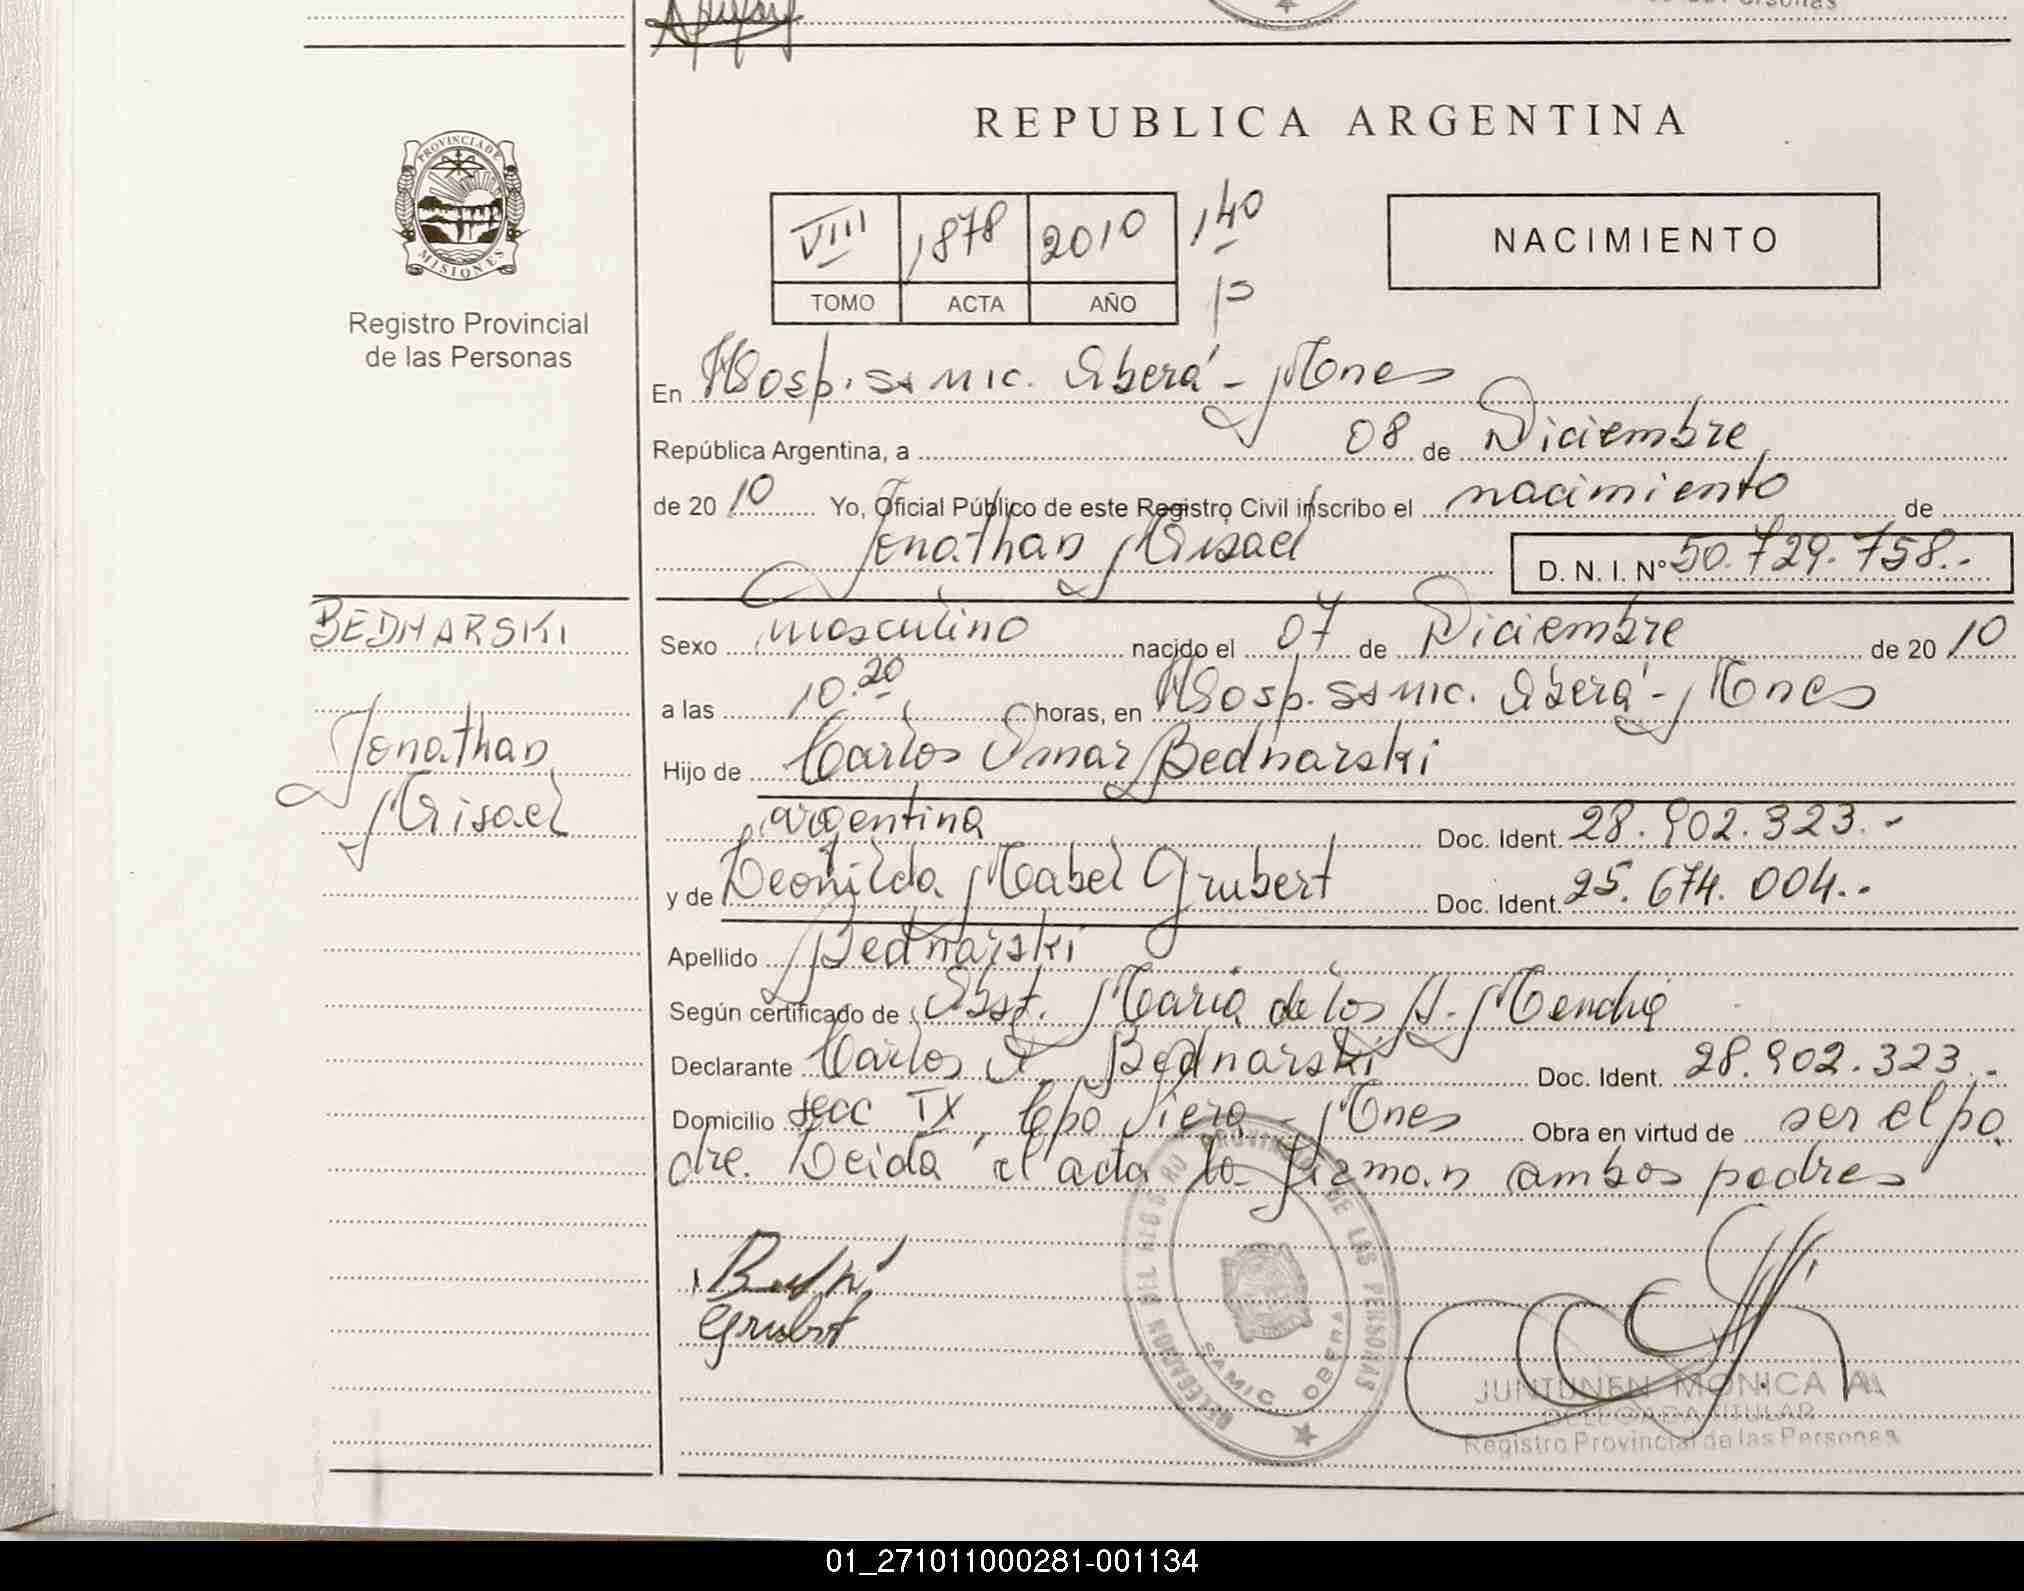 REPUBLICA ARGENTINA
PROVINCIA DE MISIONES
Registro Provincial
de las Personas
VIII 1878 2010 140
TOMO ACTA AÑO
NACIMIENTO
En Hosp. SAMIC. Oberá - Mnes
República Argentina, a 08 de Diciembre
de 20 10 Yo, Oficial Público de este Registro Civil inscribo el nacimiento de
Jonathan Misael D. N. I. Nº 50.729.758.-
BEDNARSKI
Jonathan
Misael
Sexo masculino nacido el 07 de Diciembre de 20 10
a las 10.20 horas, en Hosp. SAMIC. Oberá - Mnes
Hijo de Carlos Omar Bednarski
argentina Doc. Ident. 28.902.323.-
y de Leonilda Mabel Grubert Doc. Ident. 25.674.004.-
Apellido Bednarski
Según certificado de Obst. Maria de los A.
Declarante Carlos O. Bednarski Doc. Ident. 28.902.323.-
Domicilio secc IX, Cpo Viera - Mnes Obra en virtud de ser el pa
dre. Leida el acta la firman ambos padres
Grubert
DELEGACION DEL REGISTRO PROVINCIAL DE LAS PERSONAS
SAMIC OBERA
JUNTUNEN MONICA A.
DELEGADA TITULAR
Registro Provincial de las Personas
01_271011000281-001134